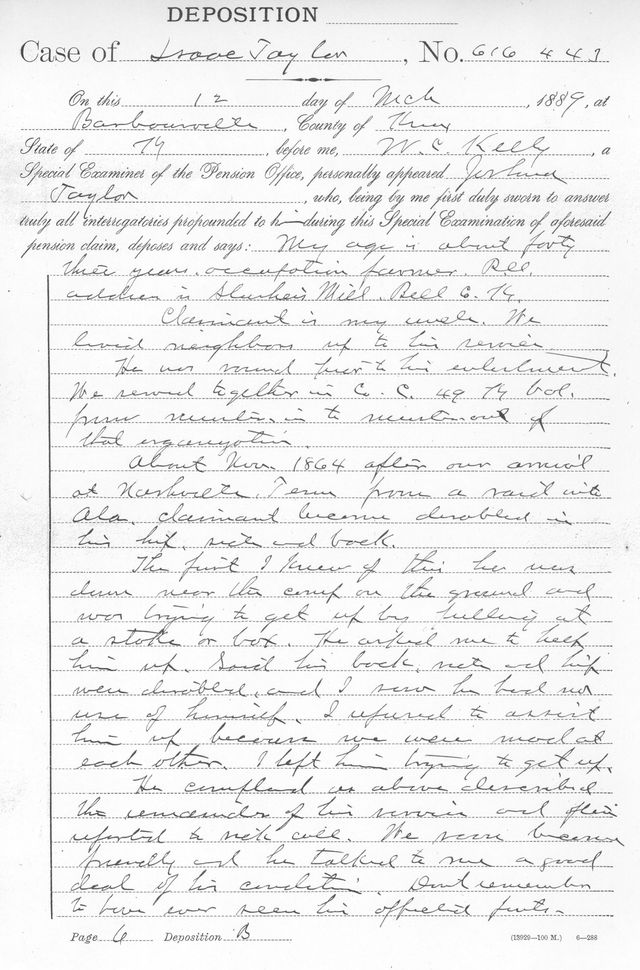 DEPOSITION
Case of Isaac Taylor, No. 616 443
On this 12 day of Mch, 1889, at
Barbourville, County of Knox
State of Ky, before me, W. C. Kelly, a
Special Examiner of the Pension Office, personally appeared Joshua
Taylor, who, being by me first duly sworn to answer
truly all interrogatories propounded to him during this Special Examination of aforesaid
pension claim, deposes and says: My age is about forty
three years. occupation farmer. P.O.
address is Slusher's Mill. Bell Co. Ky.
Claimant is my uncle. We
lived neighbors up to his service
He was sound prior to his enlistment.
We served together in Co. C. 49 Ky Vol.
from muster in to muster out of
that organization.
About Nov. 1864 after our arrival
at Nashville, Tenn from a raid into
Ala. claimant became disabled in
his hip, side and back.
The first I knew of this he was
down near the camp on the ground and
was trying to get up by pulling at
a stake or box. He asked me to help
him up. Said his back, side and hip
were disabled, and I saw he had no
use of himself. I refused to assist
him up because we were mad at
each other. I left him trying to get up.
He complained as above described
the remainder of his service and often
reported to sick call. We soon became
friendly and he talked to me a good
deal of his condition. Dont remember
to have ever seen his affected parts.
Page 6 Deposition B (13929—100 M.) 6—288